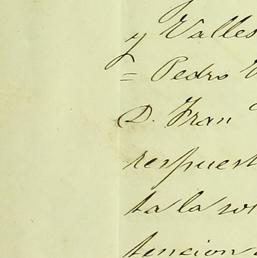 y Valles
= Pedro
D. Fran
respuest
ta la
tencion